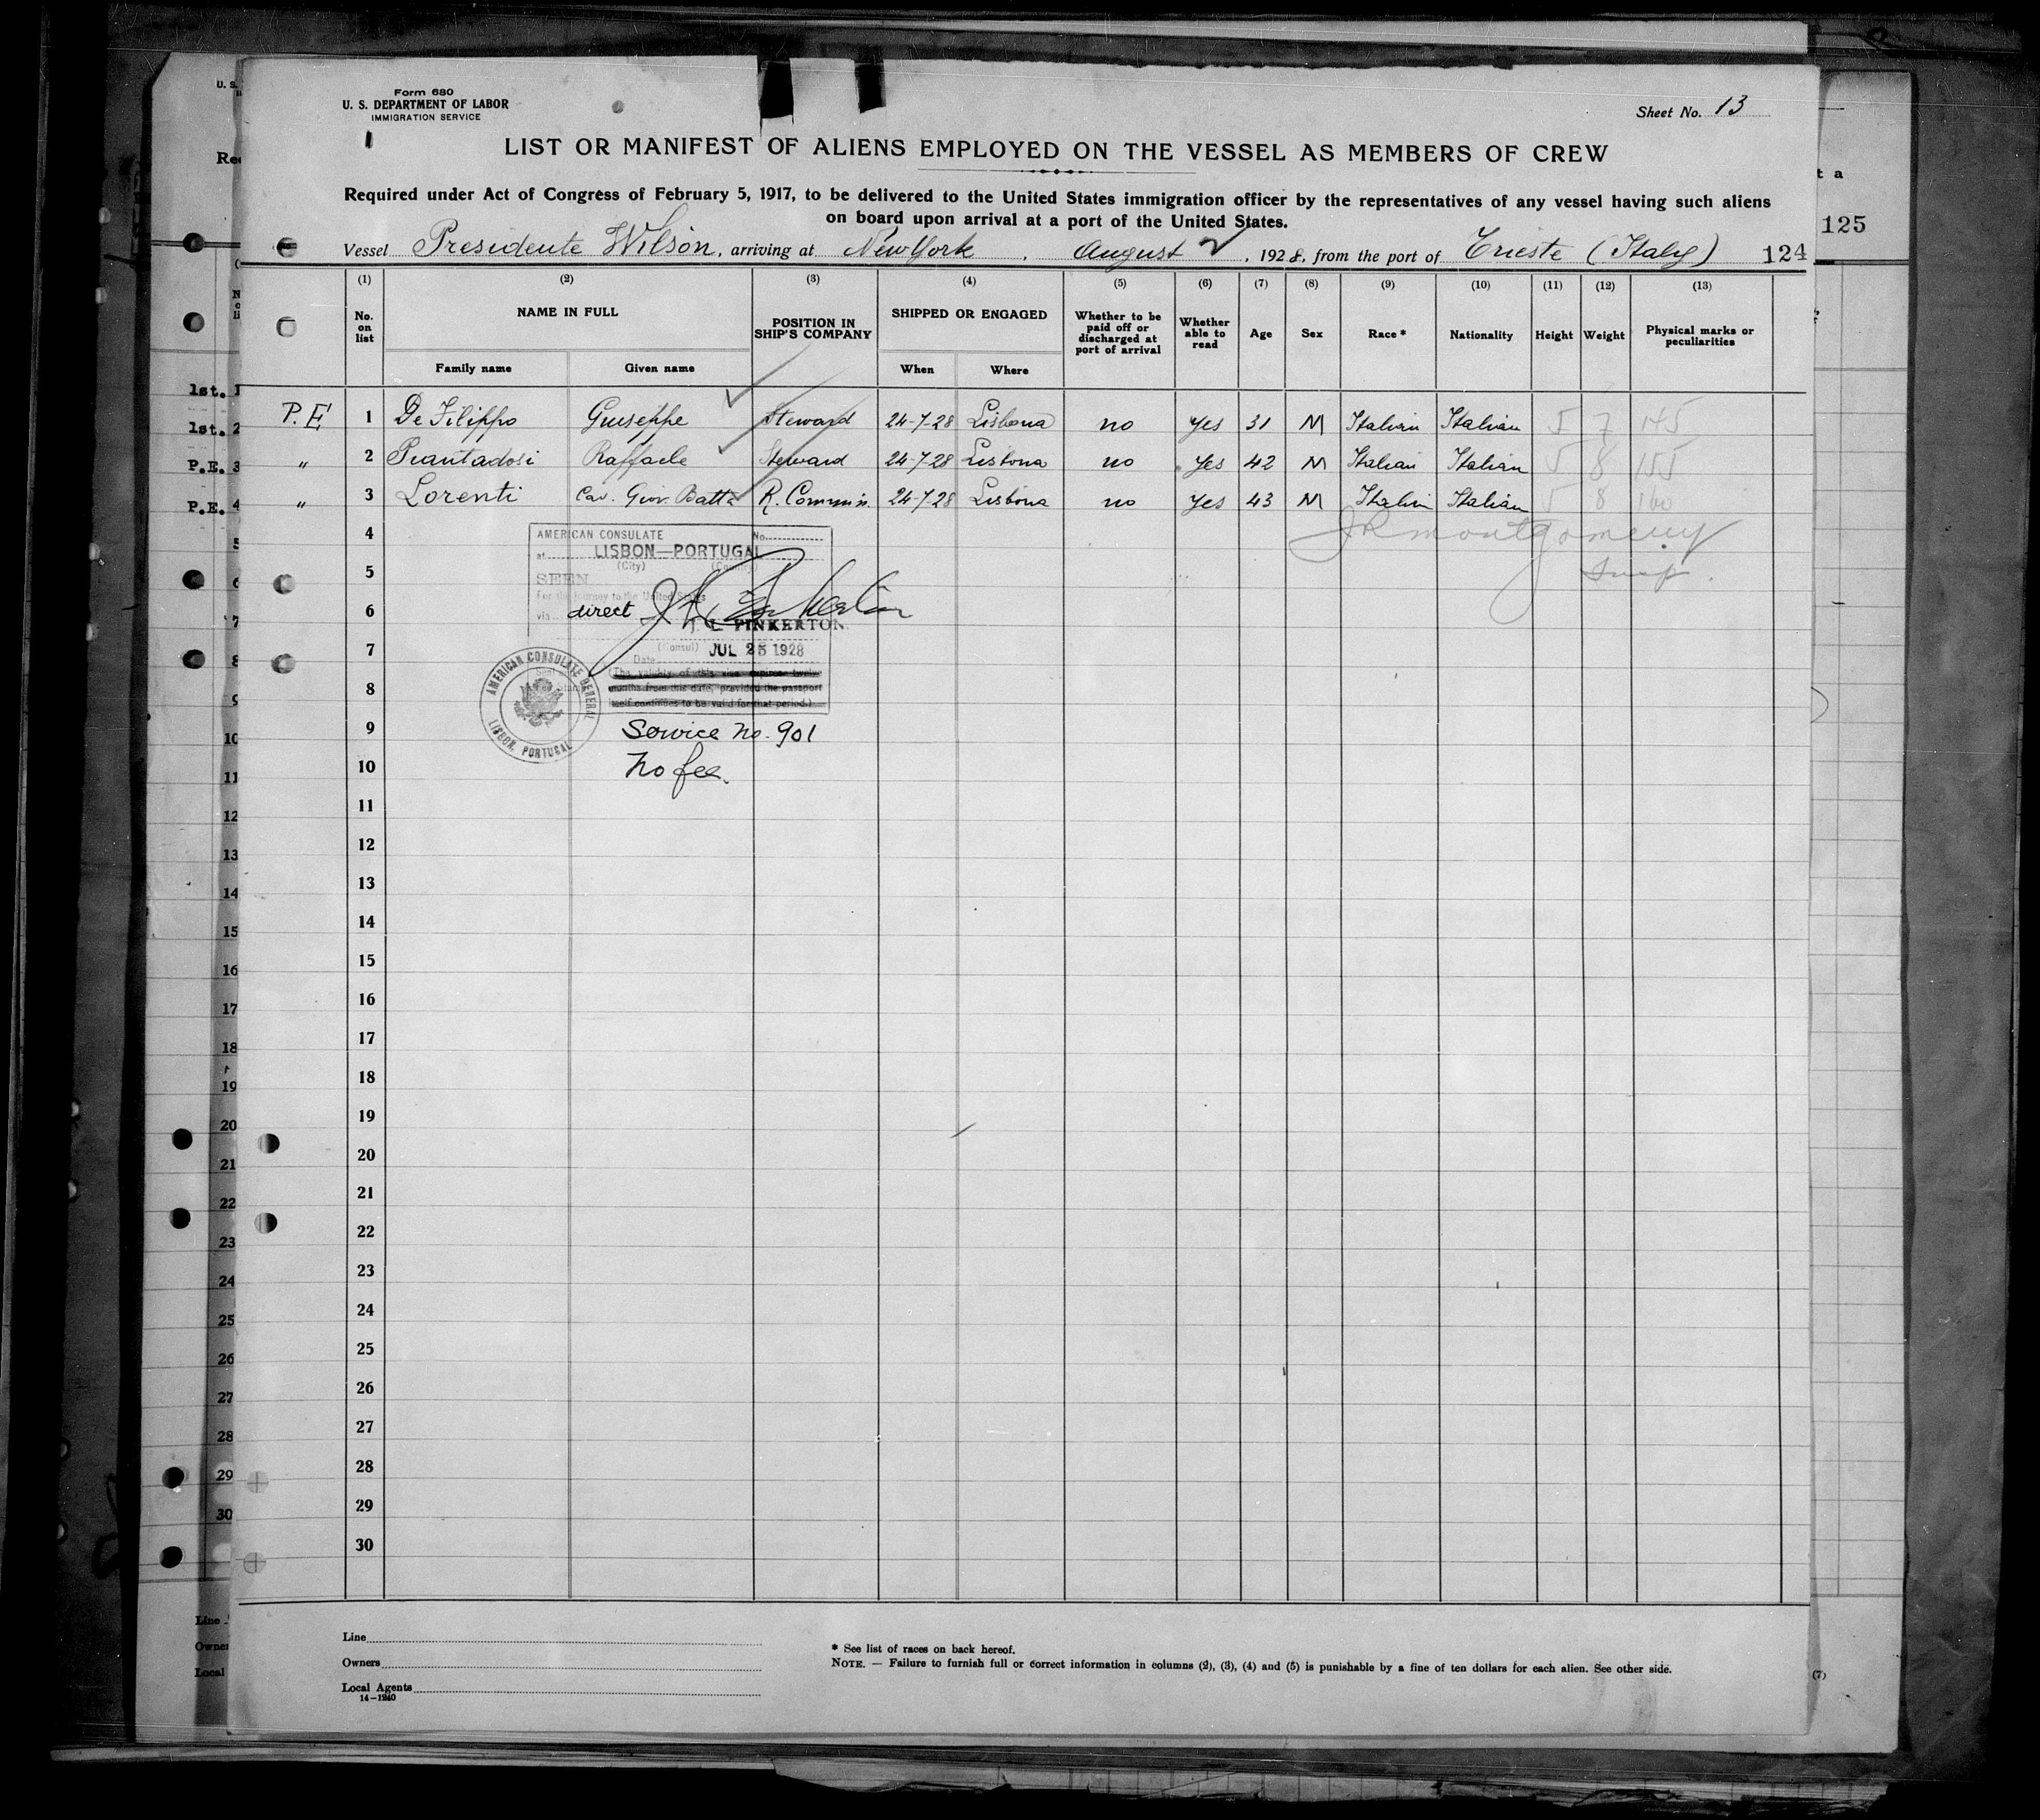 Form 680
U. S. DEPARTMENT OF LABOR
IMMIGRATION SERVICE
Sheet No. 13
LIST OR MANIFEST OF ALIENS EMPLOYED ON THE VESSEL AS MEMBERS OF CREW
Required under Act of Congress of February 5, 1917, to be delivered to the United States immigration officer by the representatives of any vessel having such aliens
on board upon arrival at a port of the United States.
Vessel Presidente Wilson, arriving at New York, August 2, 1928, from the port of Trieste (Italy) 124
125
(1) (2) (3) (4) (5) (6) (7) (8) (9) (10) (11) (12) (13)
No. on list NAME IN FULL POSITION IN SHIP'S COMPANY SHIPPED OR ENGAGED Whether to be paid off or discharged at port of arrival Whether able to read Age Sex Race * Nationality Height Weight Physical marks or peculiarities
Family name Given name When Where
P.E. 1 De Filippo Giuseppe Steward 24-7-28 Lisbona no yes 31 M Italian Italian 5 7 145
" 2 Piantadosi Raffaele Steward 24-7-28 Lisbona no yes 42 M Italian Italian 5 8 155
" 3 Lorenti Cav. Giov. Batta R. Commis. 24-7-28 Lisbona no yes 43 M Italian Italian 5 8 160
JR Montgomery
Insp.
4
5
6
7
8
9
10
11
12
13
14
15
16
17
18
19
20
21
22
23
24
25
26
27
28
29
30
AMERICAN CONSULATE No.
at LISBON—PORTUGAL
(City) (Country)
SEEN
For the journey to the United States
via direct
J. L. PINKERTON
(Consul)
Date JUL 25 1928
(The validity of this visa expires twelve
months from this date, provided the passport
itself continues to be valid for that period.)
AMERICAN CONSULATE GENERAL
LISBON, PORTUGAL
Service No. 901
No fee.
Line
Owners
Local Agents
14—1240
* See list of races on back hereof.
NOTE. — Failure to furnish full or correct information in columns (2), (3), (4) and (5) is punishable by a fine of ten dollars for each alien. See other side.
(7)